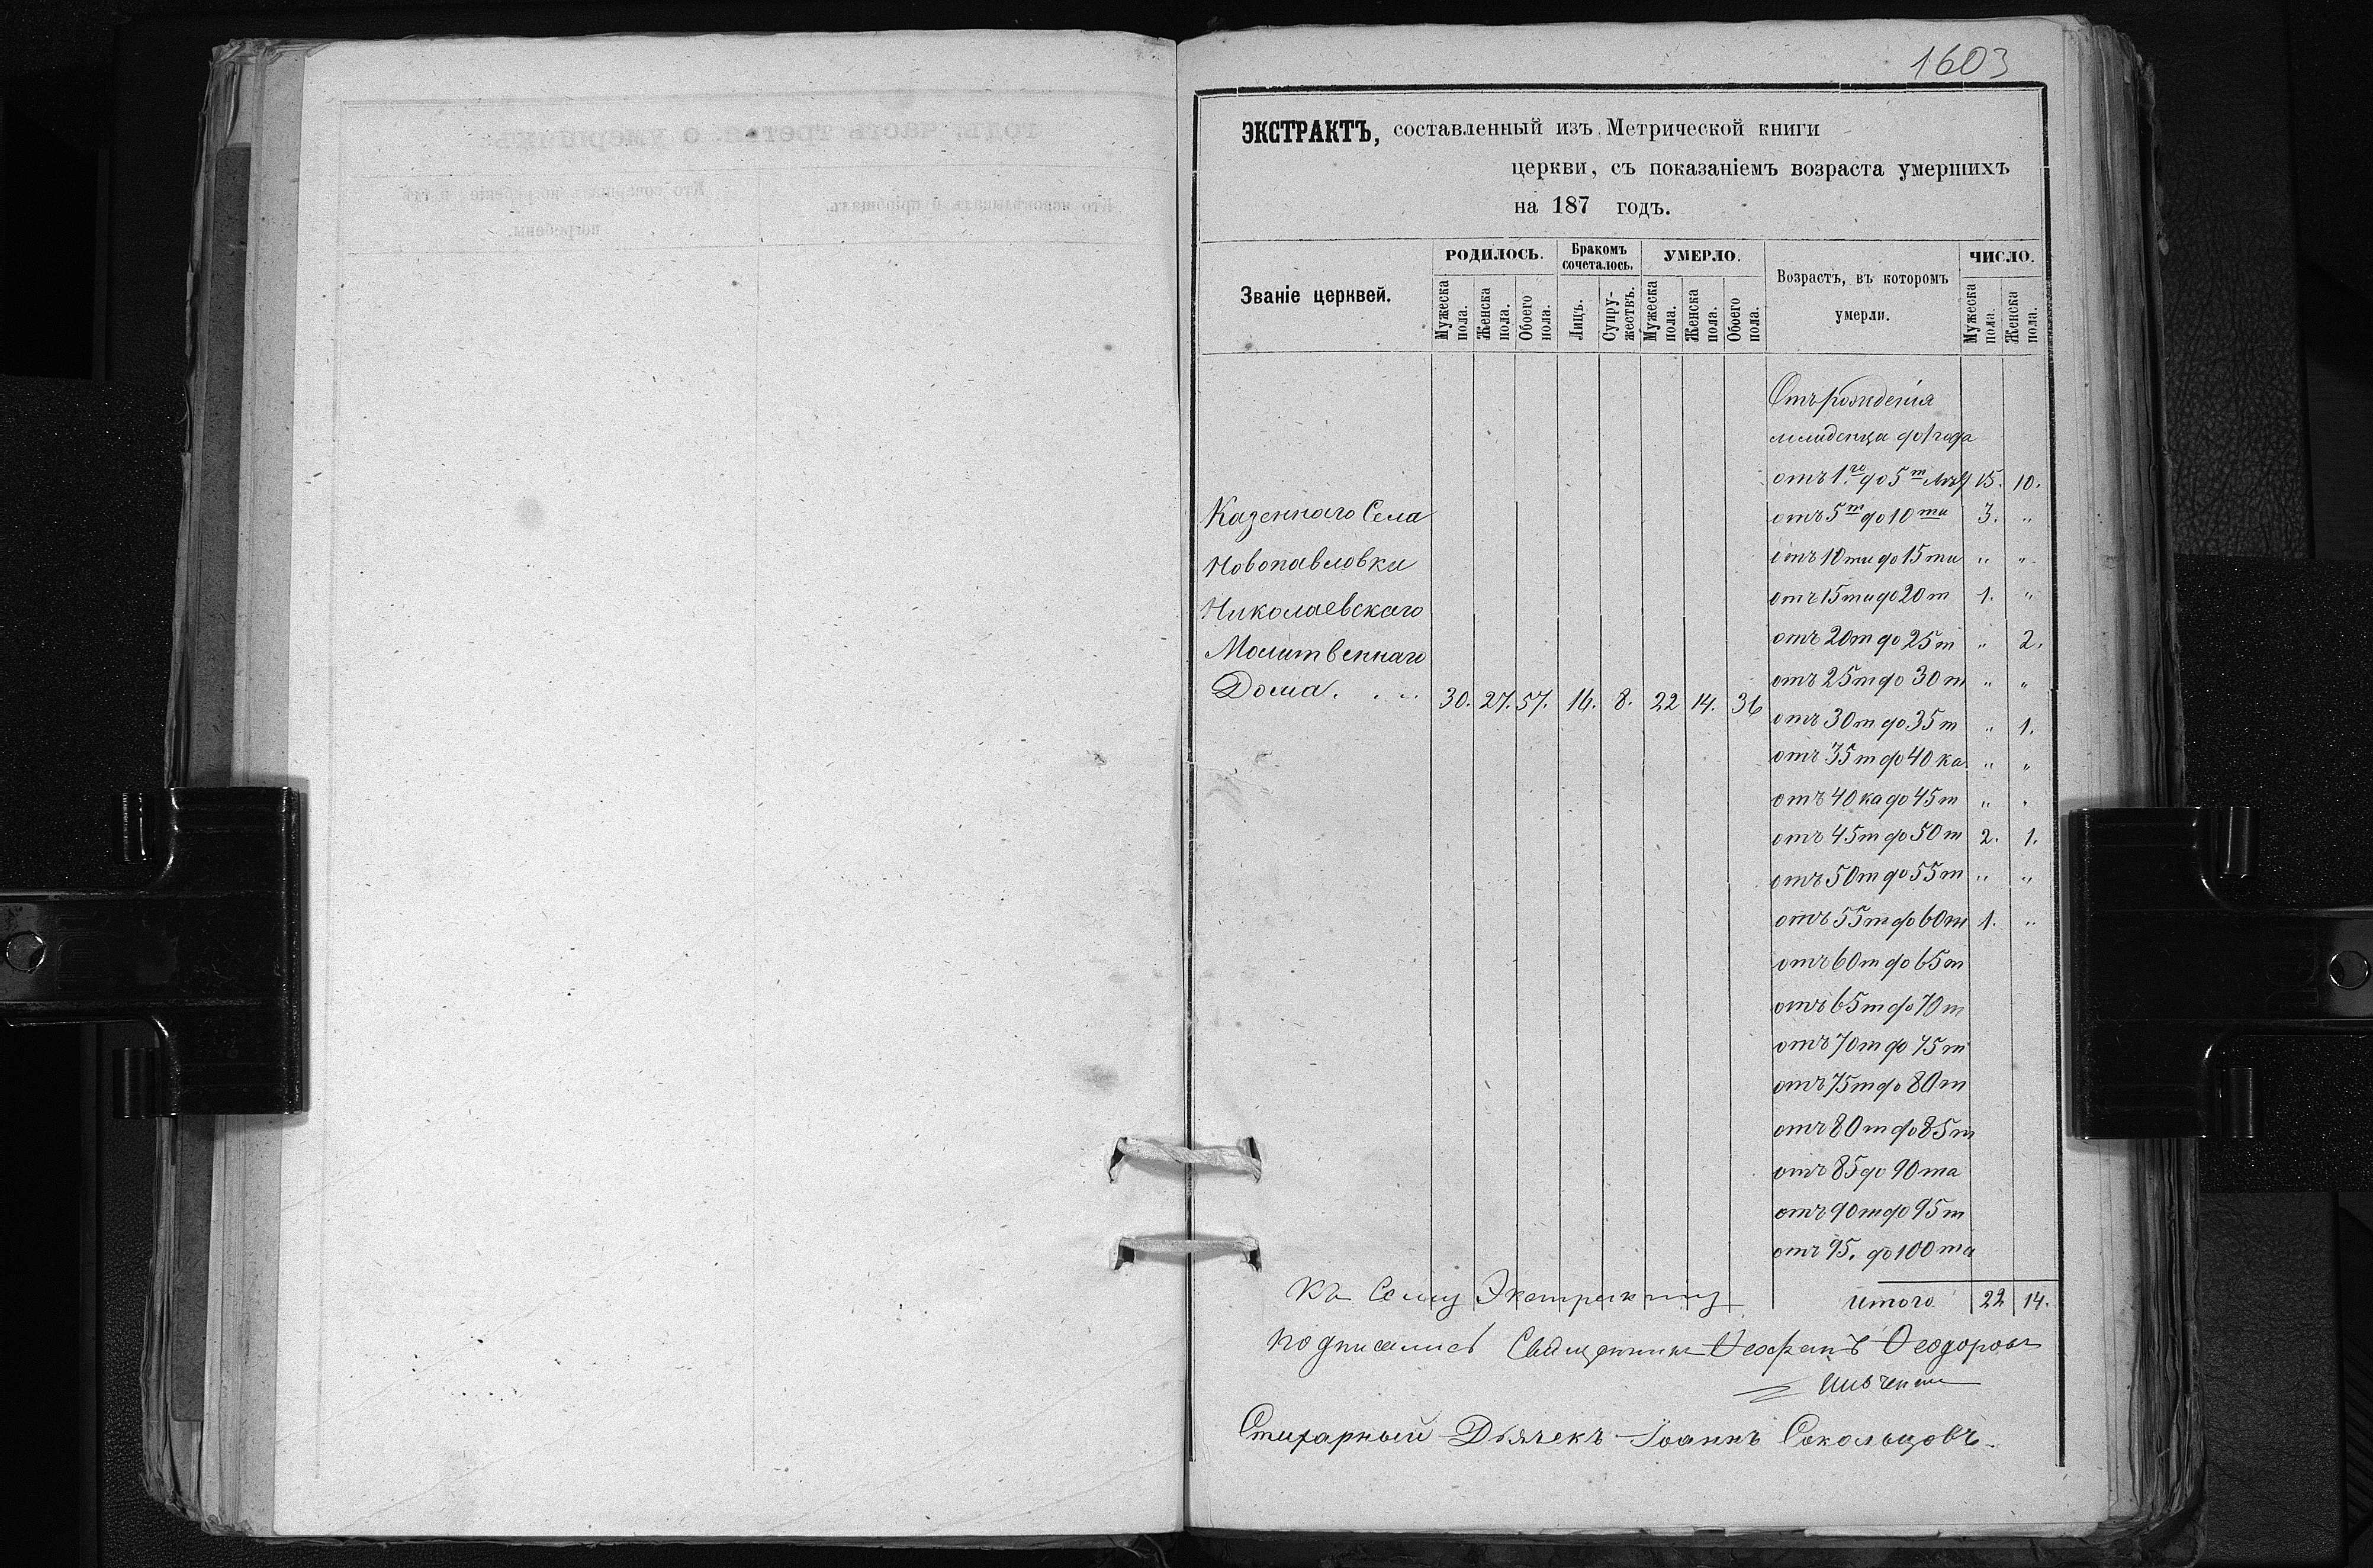 1603
ЭКСТРАКТЪ, составленный изъ Метрической книги
церкви, съ показаніемъ возраста умершихъ
на 187 годъ.
Званіе церквей.
РОДИЛОСЬ.
Мужеска пола.
Женска пола.
Обоего пола.
Бракомъ сочеталось.
Лицъ.
Супружествъ.
УМЕРЛО.
Мужеска пола.
Женска пола.
Обоего пола.
Возрастъ, въ которомъ
умерли.
ЧИСЛО.
Мужеска пола.
Женска пола.
Казеннаго Села
Новопавловки
Николаевскаго
Молитвеннаго
Дома. . . 30. 27. 57. 16. 8. 22 14. 36
Отъ рожденія
младенца до 1 года
отъ 1го до 5т лѣт 15. 10.
отъ 5т до 10ти 3. "
отъ 10ти до 15ти " "
отъ 15ти до 20т 1. "
отъ 20т до 25т " 2.
отъ 25т до 30т " "
отъ 30т до 35т " 1.
отъ 35т до 40ка " "
отъ 40ка до 45т " "
отъ 45т до 50т 2. 1.
отъ 50т до 55т " "
отъ 55т до 60т 1. "
отъ 60т до 65т
отъ 65т до 70т
отъ 70т до 75т
отъ 75т до 80т
отъ 80т до 85т
отъ 85 до 90та
отъ 90т до 95т
отъ 95. до 100та
Итого 22 14.
Къ Сему Экстракту
подписались Священникъ Ѳеофанъ Ѳеодоровъ
Стихарный Дьячекъ Іоаннъ Сокольцовъ.